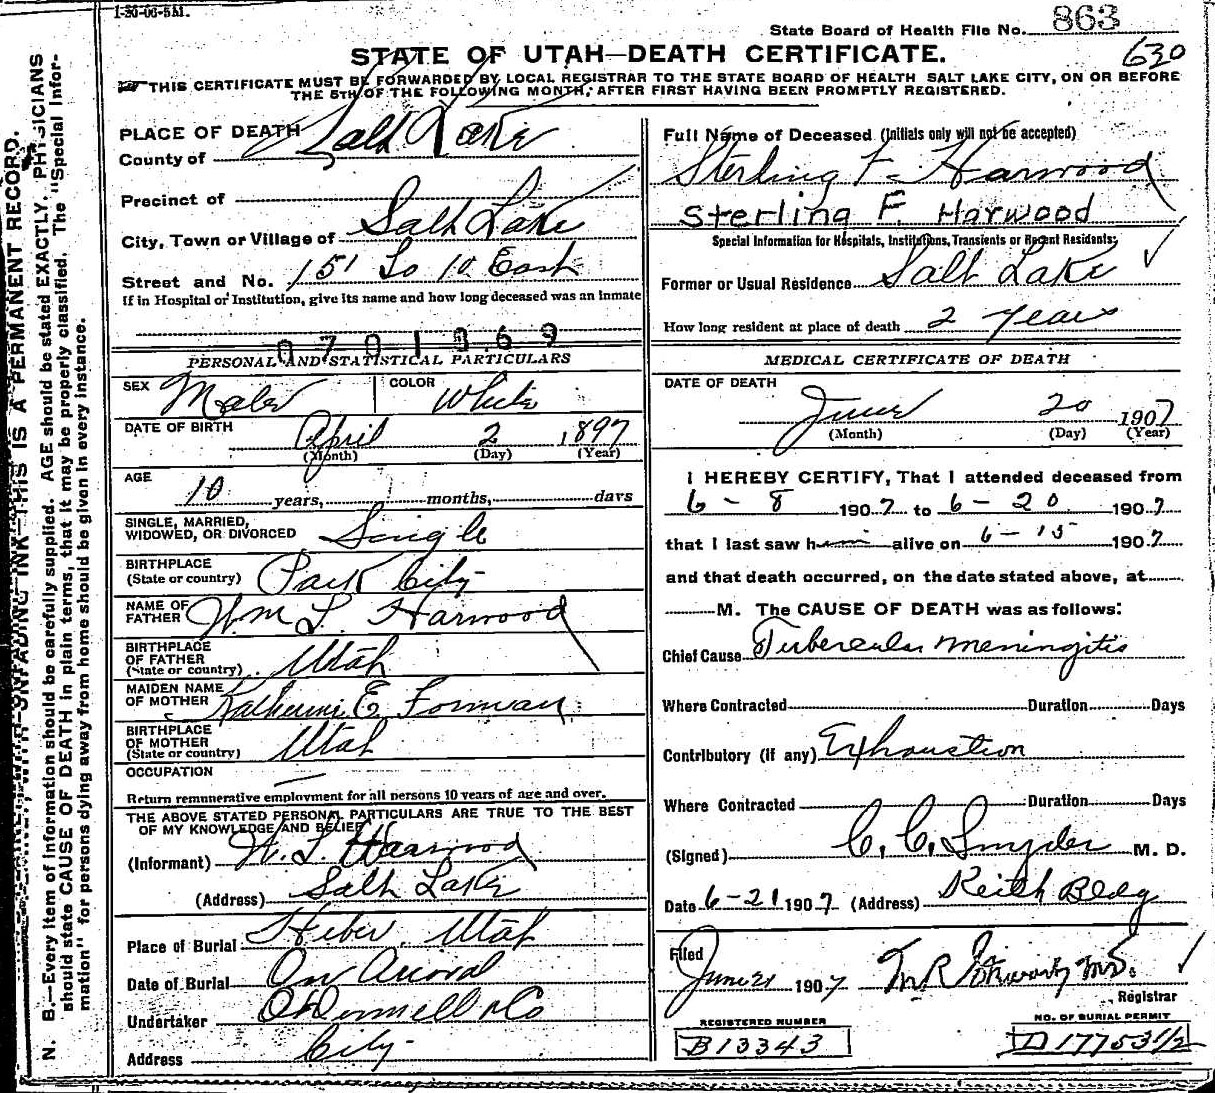 1-30-06-5M.
State Board of Health File No. 863
STATE OF UTAH—DEATH CERTIFICATE.
630
THIS CERTIFICATE MUST BE FORWARDED BY LOCAL REGISTRAR TO THE STATE BOARD OF HEALTH SALT LAKE CITY, ON OR BEFORE
THE 5TH OF THE FOLLOWING MONTH, AFTER FIRST HAVING BEEN PROMPTLY REGISTERED.
PLACE OF DEATH
County of Salt Lake
Precinct of
City, Town or Village of Salt Lake
Street and No. 151 So 10 East
If in Hospital or Institution, give its name and how long deceased was an inmate
0701969
Full Name of Deceased (Initials only will not be accepted)
Sterling F. Harwood
Sterling F. Harwood
Special Information for Hospitals, Institutions, Transients or Recent Residents:
Former or Usual Residence Salt Lake
How long resident at place of death 2 years
PERSONAL AND STATISTICAL PARTICULARS
SEX Male COLOR White
DATE OF BIRTH April 2 1897
(Month) (Day) (Year)
AGE 10 years, months, days
SINGLE, MARRIED,
WIDOWED, OR DIVORCED Single
BIRTHPLACE
(State or country) Park City
NAME OF
FATHER Wm L. Harwood
BIRTHPLACE
OF FATHER
(State or country) Utah
MAIDEN NAME
OF MOTHER Katherine E. Forman
BIRTHPLACE
OF MOTHER
(State or country) Utah
OCCUPATION —
Return remunerative employment for all persons 10 years of age and over.
THE ABOVE STATED PERSONAL PARTICULARS ARE TRUE TO THE BEST
OF MY KNOWLEDGE AND BELIEF
(Informant) W. L Harwood
(Address) Salt Lake
Place of Burial Heber, Utah
Date of Burial On Arrival
Undertaker O'Donnell & Co
Address City
MEDICAL CERTIFICATE OF DEATH
DATE OF DEATH
June 20 1907
(Month) (Day) (Year)
I HEREBY CERTIFY, That I attended deceased from
6 - 8 1907 to 6 - 20 1907
that I last saw him alive on 6 - 15 1907
and that death occurred, on the date stated above, at
M. The CAUSE OF DEATH was as follows:
Chief Cause Tubercular meningitis
Where Contracted Duration Days
Contributory (if any) Exhaustion
Where Contracted Duration Days
(Signed) C. C. Snyder M. D.
Date 6-21 1907 (Address) Keith Bldg
Filed
June 21 1907
Registrar
REGISTERED NUMBER
B13343
NO. OF BURIAL PERMIT
D 17753 1/2
N. B.—Every item of information should be carefully supplied. AGE should be stated EXACTLY. PHYSICIANS
should state CAUSE OF DEATH in plain terms, that it may be properly classified. The "Special Infor-
mation" for persons dying away from home should be given in every instance.
WITH UNFADING INK—THIS IS A PERMANENT RECORD.